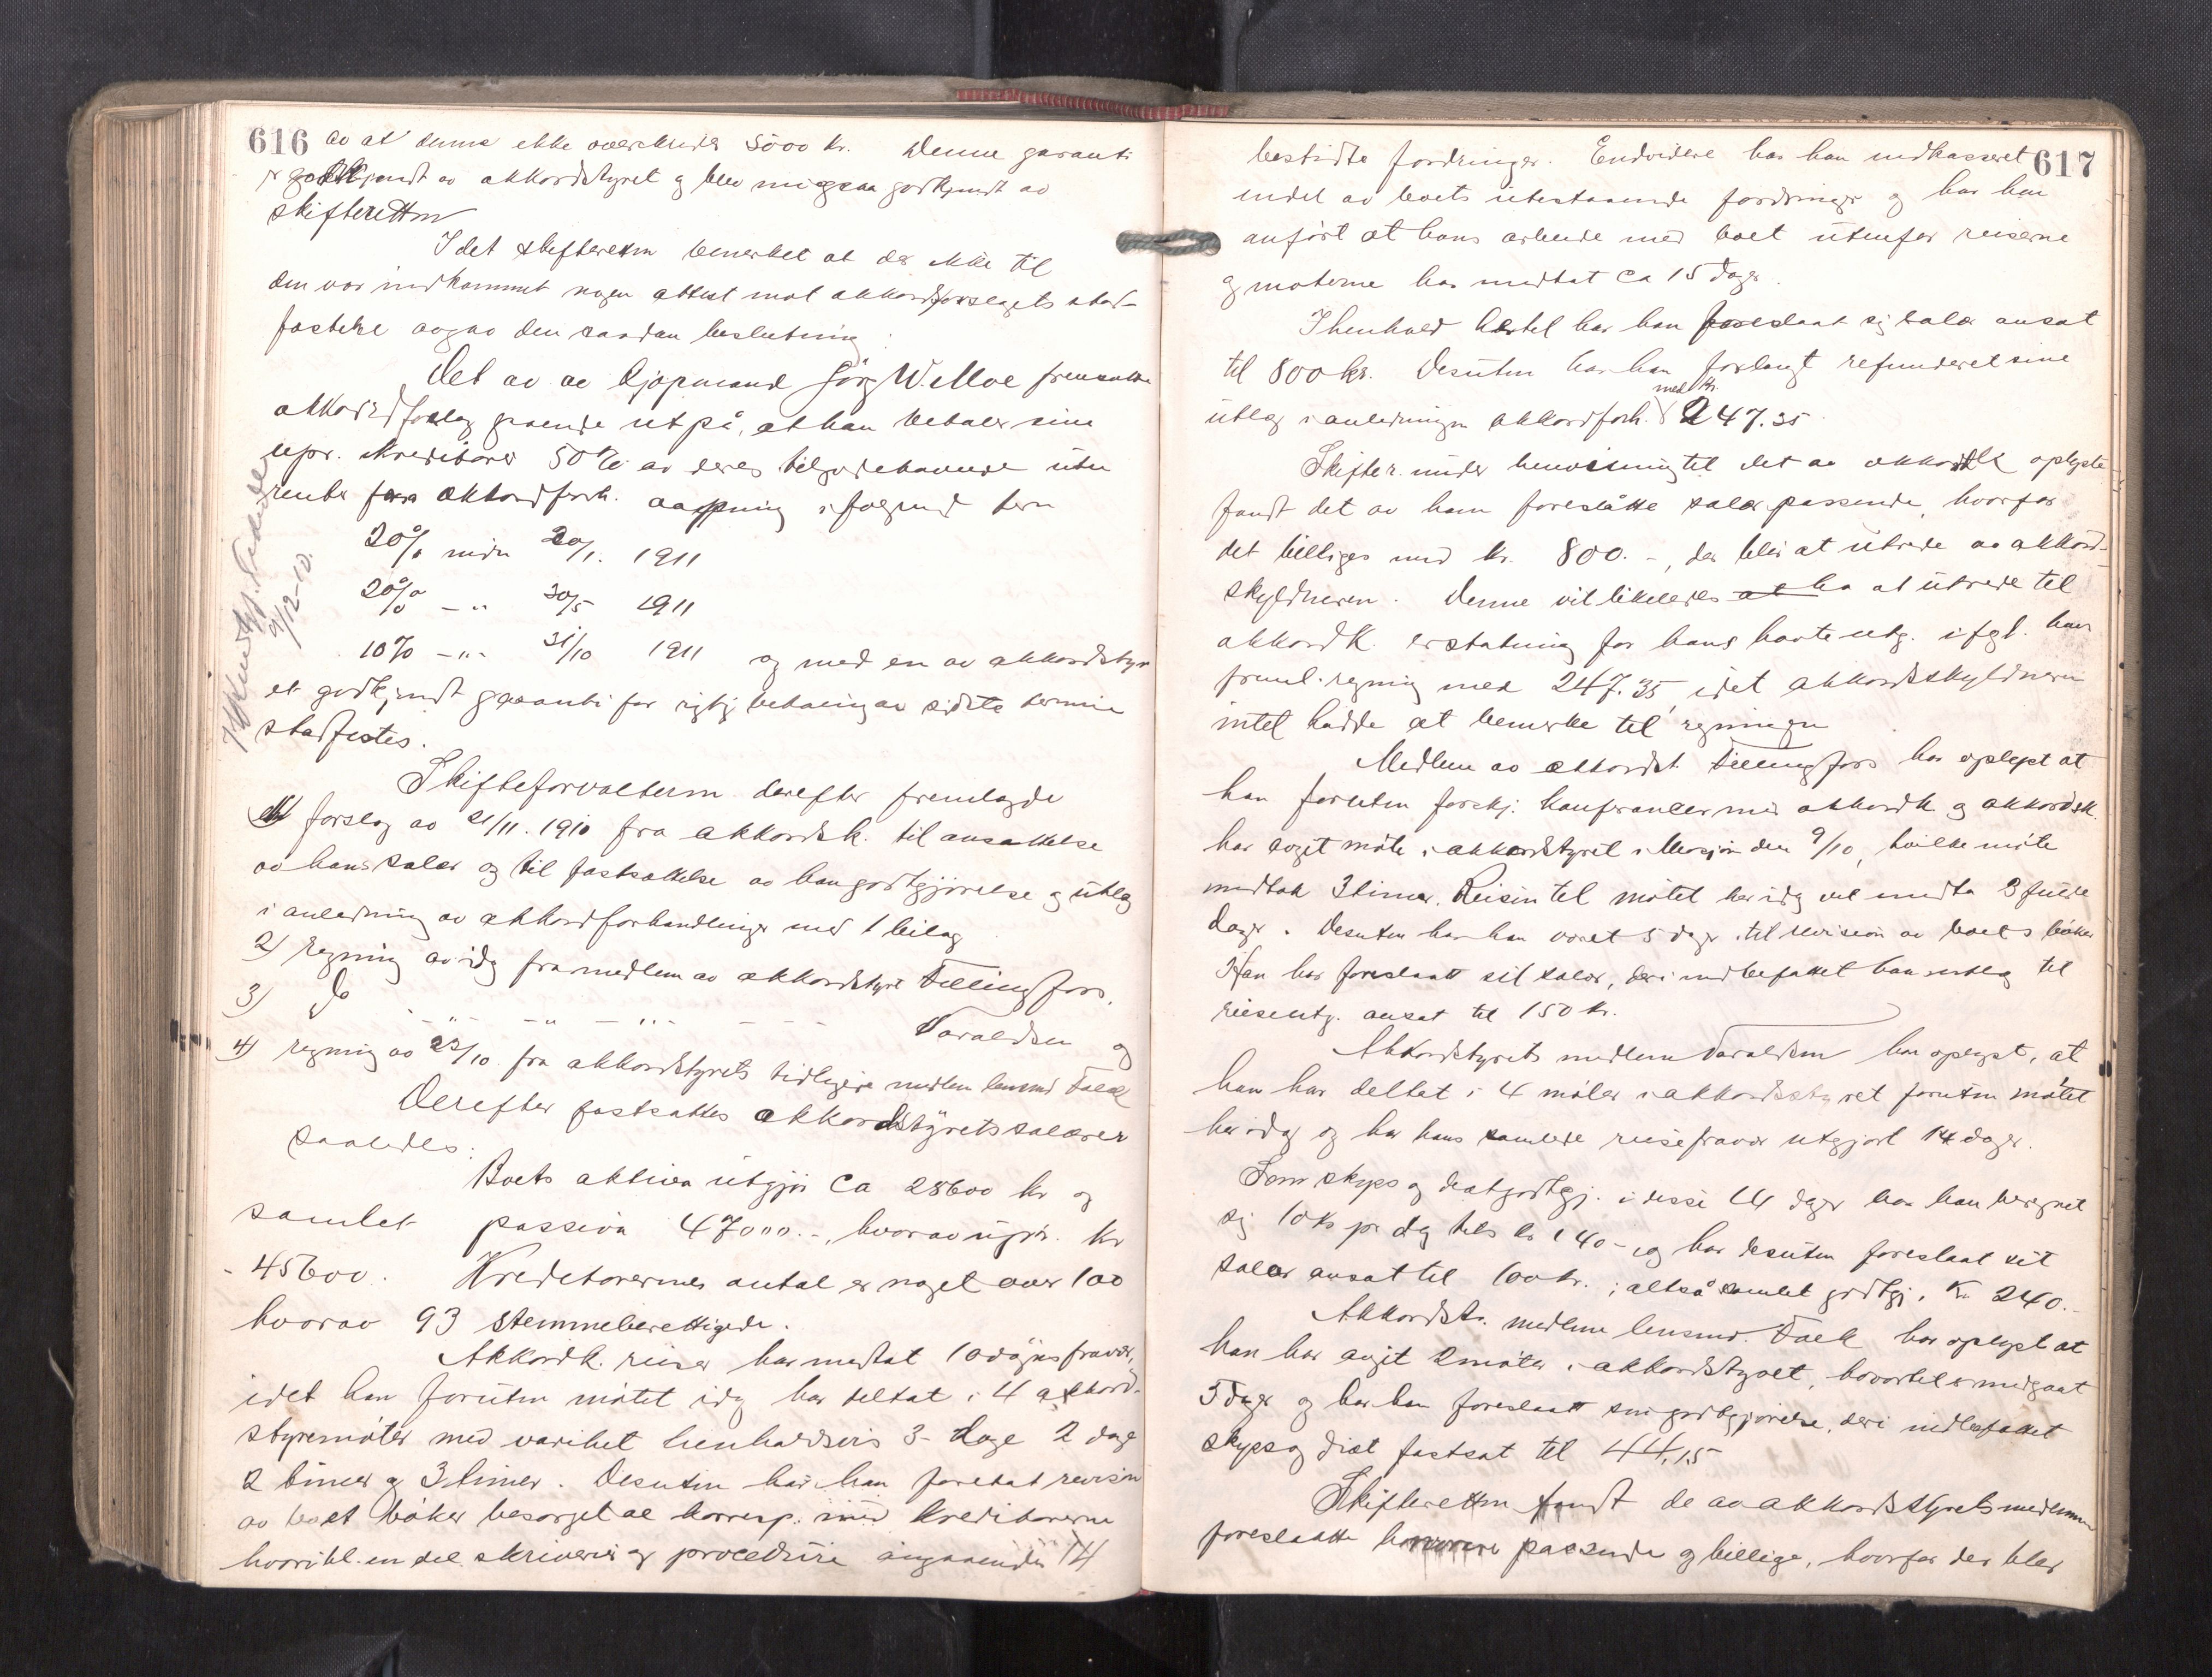 616 av at denne ikke overskrider 5000 kr. Denne garanti
er godkjendt av akkordstyret og blev ogsaa godkjendt av
skifteretten
Idet skifteretten bemerket at der ikke til
den var indkommet nogen attest mot akkordforslagets stad-
fæstelse avgav den saadan beslutning:
Det av av kjøpmand Jørg W. Moe fremsatte
akkordforslag gaaende ut på, at han betaler sine
upr. kreditorer 50% av deres tilgodehavende uten
renter fra akkordforh. aapning i følgende term
20% inden 20/1. 1911
20% -"- 30/5 1911
10% -"- 31/10 1911 og med en av akkordstyr
et godkjendt garanti for rigtig betaling av sidste termin
stadfestes.
9/12-10.
Skifteforvalteren derefter fremlagde
1) forslag av 21/11. 1910 fra akkordsk. til ansættelse
av hans salær og til fastsættelse av hans godtgjørelse og utlæg
i anledning av akkordforhandlinger med 1 bilag
2) regning av idag fra medlem av akkordstyret Tellingfors.
3) Do -"- -"- -"- Varaldsen og
4) regning av 22/10. fra akkordstyrets tidligere medlem lensmd Falck
Derefter fastsattes akkordstyrets salærer
saaledes:
Boets aktiva utgjør ca 28600 kr og
samlet passiva 47000.-, hvorav upr. kr
- 45600. Kreditorernes antal er noget over 100
hvorav 93 stemmeberettigede.
Akkordk. reiser har medtat 10 døgns fravær,
idet han foruten møtet idag har deltat i 4 akkord-
styremøter med varihet henholdsvis 3 dage 2 dage
2 timer og 3 timer. Desuten har han foretat revision
av boets bøker besørget al korresp. med kreditorerne
hvoribl. en del skriverier og procedure angaaende 14
617
bestridte fordringer. Endvidere har han indkasseret
endel av boets utestaaende fordringer og har han
anført at hans arbeide med boet utenfor reiserne
og møterne har medtat ca 15 dage.
I henhold hertil har han foreslaat sig salær ansat
til 800 kr. Desuten har han forlangt refunderet sine
utlæg i anledningen akkordforh. med kr. 247.35
Skifter. under henvisning til det av akkordk oplyste
fandt det av ham foreslåtte salær passende, hvorfor
det billiges med kr. 800.-, der blir at utrede av akkord-
skyldneren. Denne vil likeledes at ha at utrede til
akkordk. erstatning for hans havte utg. ifgl. hans
freml. regning med 247.35 idet akkordskyldneren
intet hadde at bemerke til regningen
Medlem av akkordst. Tellingfors har oplyst at
han foruten forskj. konferancer med akkordk og akkordsk.
har avgit møte i akkordstyret i Mosjøen den 9/10, hvilke møte
medtok 3 timer. Reisen til møtet her idag vil medta 3 fulde
dager. Desuten har han været 5 dage til revision av boets bøker
Han har foreslaatt sit salær, deri indbefattet hans utlæg til
reiseutg. ansat til 150 kr.
Akkordstyrets medlem Varaldsen har oplyst, at
han har deltat i 4 møter i akkordstyret foruten møtet
her idag og har hans samlede reisefravær utgjort 14 dager.
Som skyss og diætgodtgj. i disse 14 dager har han beregnet
sig 10 kr pr dag tils kr 140- og har desuten foreslaat sit
salær ansat til 100 kr.; altså samlet godtgj. Kr. 240.-
Akkordst. medlem lensmd. Falck har oplyst at
han har avgit 2 møter i akkordstyret, hvortil er medgaat
5 dage og har han foreslaatt sin godtgjørelse, deri indbefattet
skyss og diæt fastsat til 44,15
Skifteretten fandt de av akkordstyrets medlemmer
foreslaatte honorarer passende og billige, hvorfor der blev